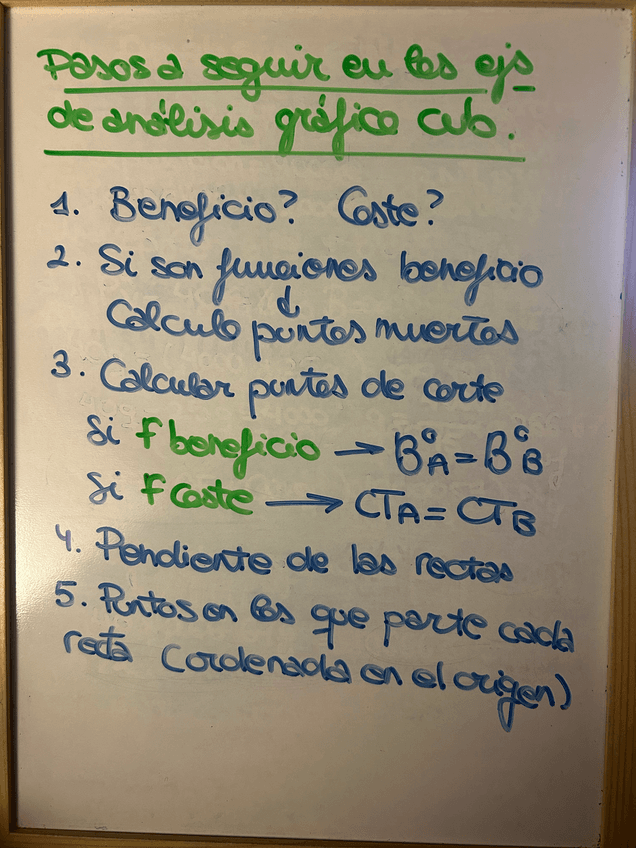 Pasos a seguir en los ejs
de análisis gráfico cvb.
1. Beneficio? Coste?
2. Si son funciones beneficio
↓
Calculo puntos muertos
3. Calcular puntos de corte
Si F beneficio → Bº A = Bº B
Si F coste → CTA = CTB
4. Pendiente de las rectas
5. Puntos en los que parte cada
recta (ordenada en el origen)